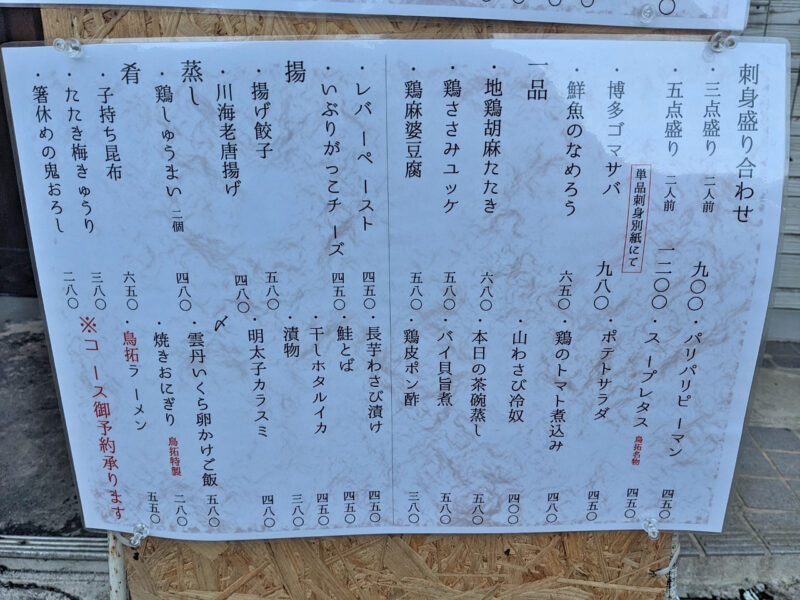 刺身盛り合わせ
・三点盛り 二人前 九〇〇
・五点盛り 二人前 一二〇〇
単品刺身別紙にて
・博多ゴマサバ 九八〇
一品
・鮮魚のなめろう 六五〇
・地鶏胡麻たたき 六八〇
・鶏ささみユッケ 五八〇
・鶏麻婆豆腐 五八〇
・パリパリピーマン 四五〇
・スープレタス 鳥拓名物 四五〇
・ポテトサラダ 四五〇
・鶏のトマト煮込み 四八〇
・山わさび冷奴 四〇〇
・本日の茶碗蒸し 五八〇
・バイ貝旨煮 五八〇
・鶏皮ポン酢 三八〇
・レバーペースト 四五〇
・いぶりがっこチーズ 四五〇
揚
・揚げ餃子 五八〇
・川海老唐揚げ 四八〇
蒸し
・鶏しゅうまい 二個 四八〇
肴
・子持ち昆布 六五〇
・たたき梅きゅうり 三八〇
・箸休めの鬼おろし 二八〇
・長芋わさび漬け 四五〇
・鮭とば 四五〇
・干しホタルイカ 四五〇
・漬物 三八〇
・明太子カラスミ 四八〇
〆
・雲丹いくら卵かけご飯 五八〇
・焼きおにぎり 鳥拓特製 二八〇
・鳥拓ラーメン 五五〇
※コース御予約承ります